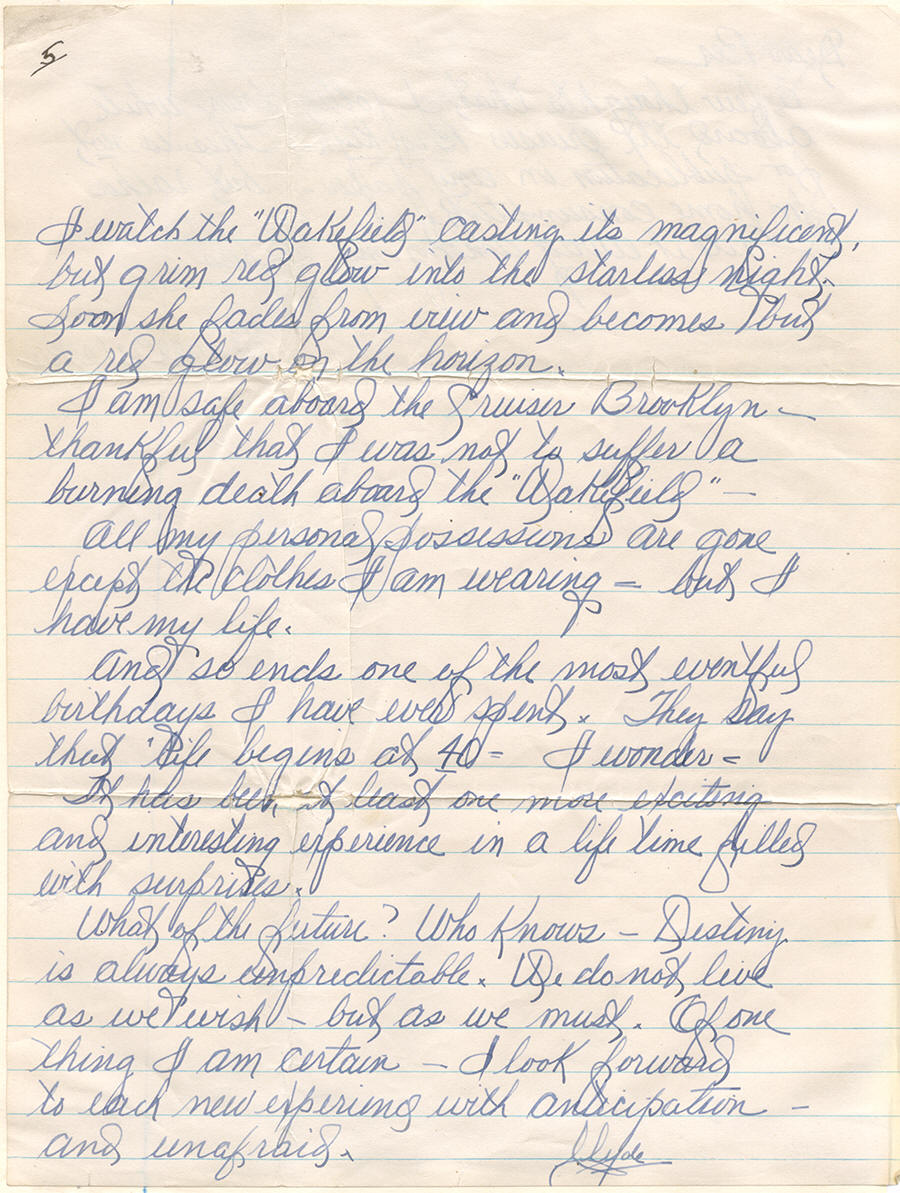 5
I watch the "Wakefield" casting its magnificent,
but grim red glow into the starless night.
Soon she fades from view and becomes but
a red glow on the horizon.
I am safe aboard the Cruiser Brooklyn —
thankful that I was not to suffer a
burning death aboard the "Wakefield" —
All my personal possessions are gone
except the clothes I am wearing — but I
have my life.
And so ends one of the most eventful
birthdays I have ever spent. They say
that "life begins at 40 = I wonder =
It has been at least one more exciting
and interesting experience in a life time filled
with surprises.
What of the future? Who Knows — Destiny
is always unpredictable. We do not live
as we wish — but as we must. Of one
thing I am certain — I look forward
to each new experieng with anticipation —
and unafraid.
Clyde